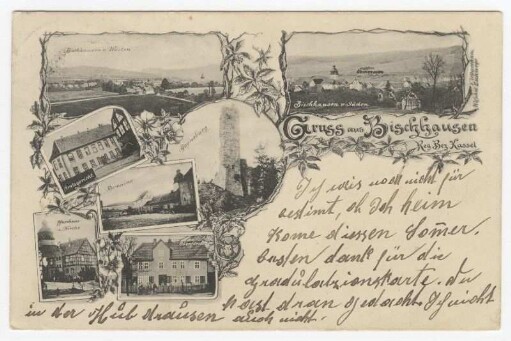 Bischhausen v. Westen
Bischhausen v. Süden
Gruss aus Bischhausen
Reg. Bez. Kassel
Amtsgericht
Pfarrhaus
u. Kirche
Ich weis noch nicht für
bestimt, ob Ich heim
kome diessen Somer.
besten dank für die
Gradulatzionskarte. Du
hast dran gedacht. Ich nicht
in der Hub drausen
auch nicht.